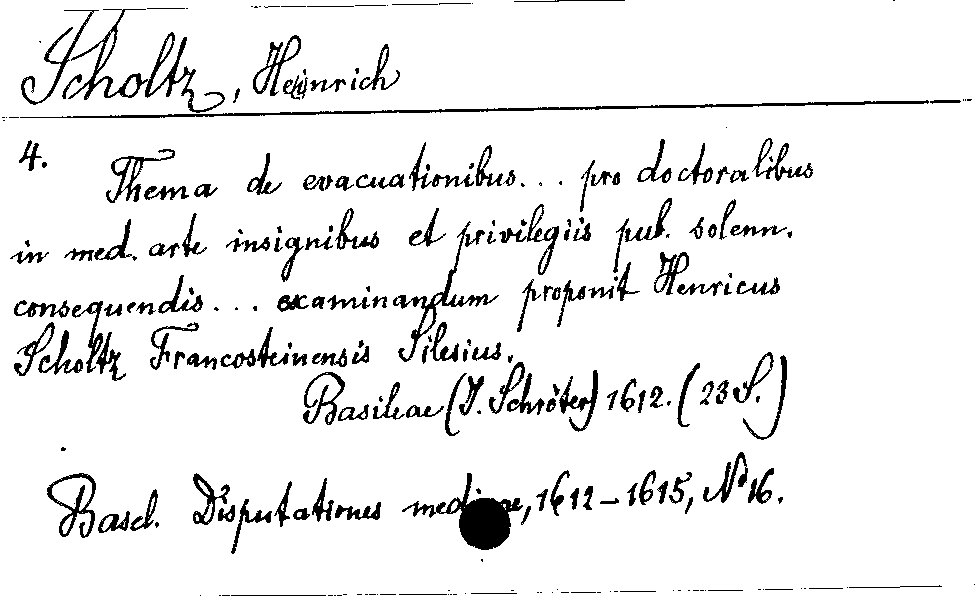 Scholtz, Heinrich
4.
Thema de evacuationibus... pro doctoralibus
in med. arte insignibus et privilegiis pub. solenn.
consequendis... examinandum proponit Henricus
Scholtz Francosteinensis Silesius.
Basileae (J. Schröter) 1612. (23 S.)
Basel. Disputationes medicae, 1612-1615, No 16.